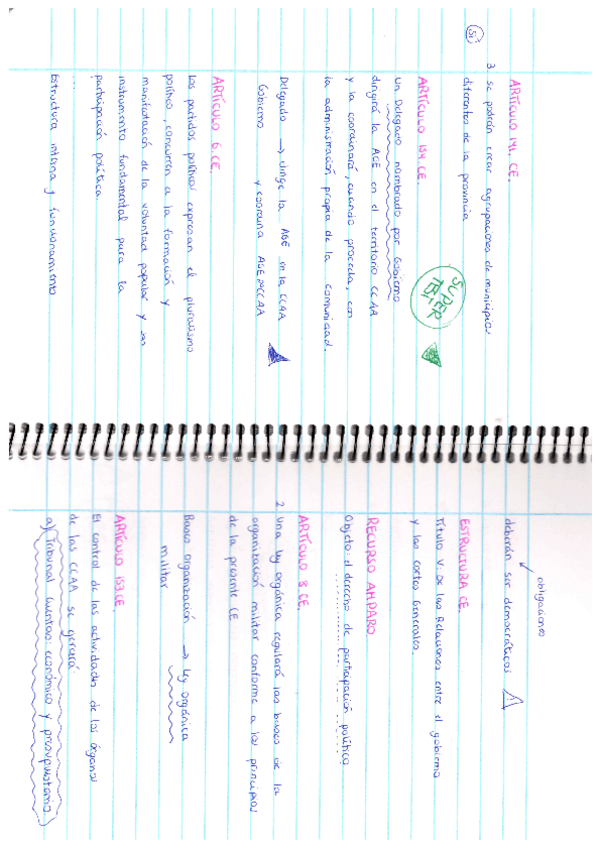 51
ARTÍCULO 141. CE.
3. se podrán crear agrupaciones de municipios
diferentes de la provincia
ARTÍCULO 154. CE.
Un Delegado nombrado por Gobierno
dirigirá la AGE en el territorio CCAA
y la coordinará, cuando proceda, con
la administración propia de la comunidad.
SUPER
TEST
Delegado → dirige la AGE en la CCAA
Gobierno y coordina AGE CCAA
ARTÍCULO 6. CE.
Los partidos políticos expresan el pluralismo
político, concurren a la formación y
manifestación de la voluntad popular y son
instrumento fundamental para la
participación política.
...
Estructura interna y funcionamiento
obligaciones
deberán ser democráticos
ESTRUCTURA CE.
Título V. De las Relaciones entre el gobierno
y las Cortes Generales.
RECURSO AMPARO
Objeto: el derecho de participación política
ARTÍCULO 8 CE.
2. Una ley orgánica regulará las bases de la
organización militar conforme a los principios
de la presente CE
Bases organización → ley orgánica
militar
ARTÍCULO 153. CE.
El control de las actividades de los órganos
de las CCAA se ejercerá
a) Tribunal Cuentas: económico y presupuestario.